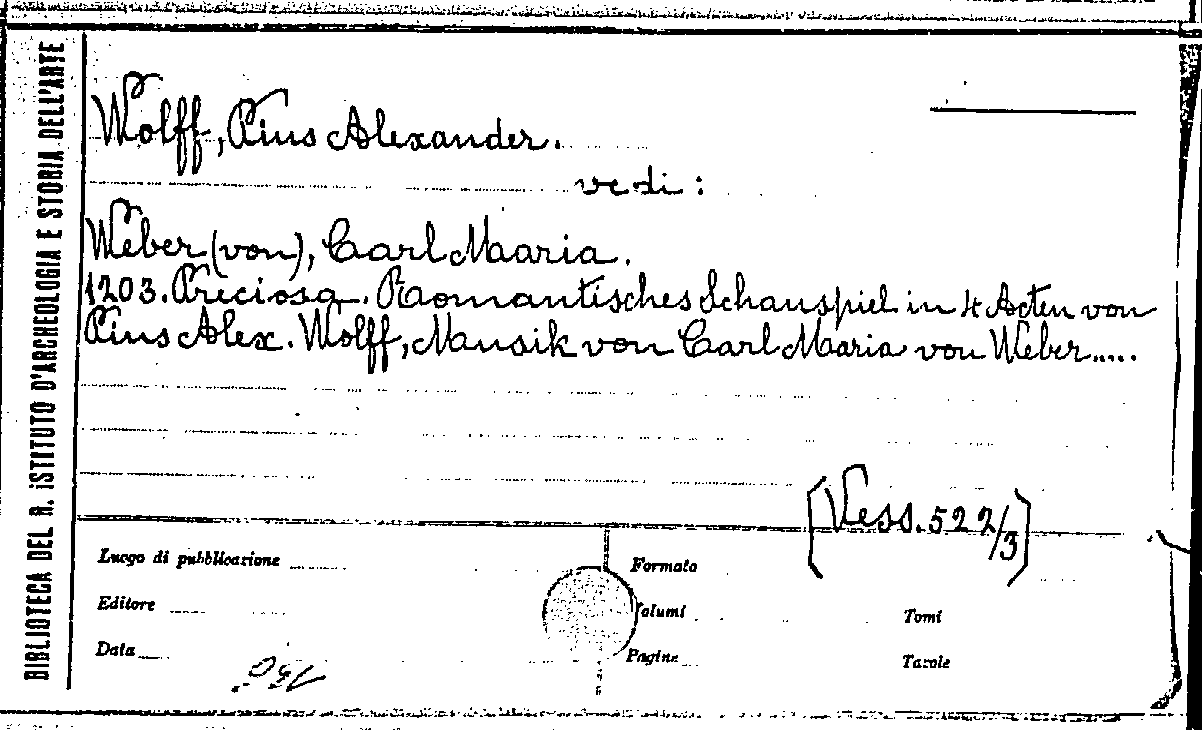 BIBLIOTECA DEL R. ISTITUTO D'ARCHEOLOGIA E STORIA DELL'ARTE
Wolff, Pius Alexander.
vedi:
Weber (von), Carl Maria.
1203. Preciosa. Romantisches Schauspiel in 4 Acten von
Pius Alex. Wolff, Musik von Carl Maria von Weber.....
[Vess. 522/3]
Luogo di pubblicazione
Formato
Editore
Volumi
Tomi
Data
Pagine
Tavole